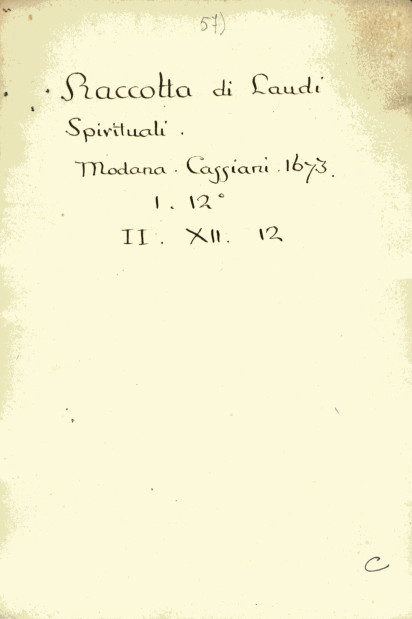 57)
Raccolta di Laudi
Spirituali.
Modana. Cassiani. 1673.
1. 12°
II. XII. 12
C